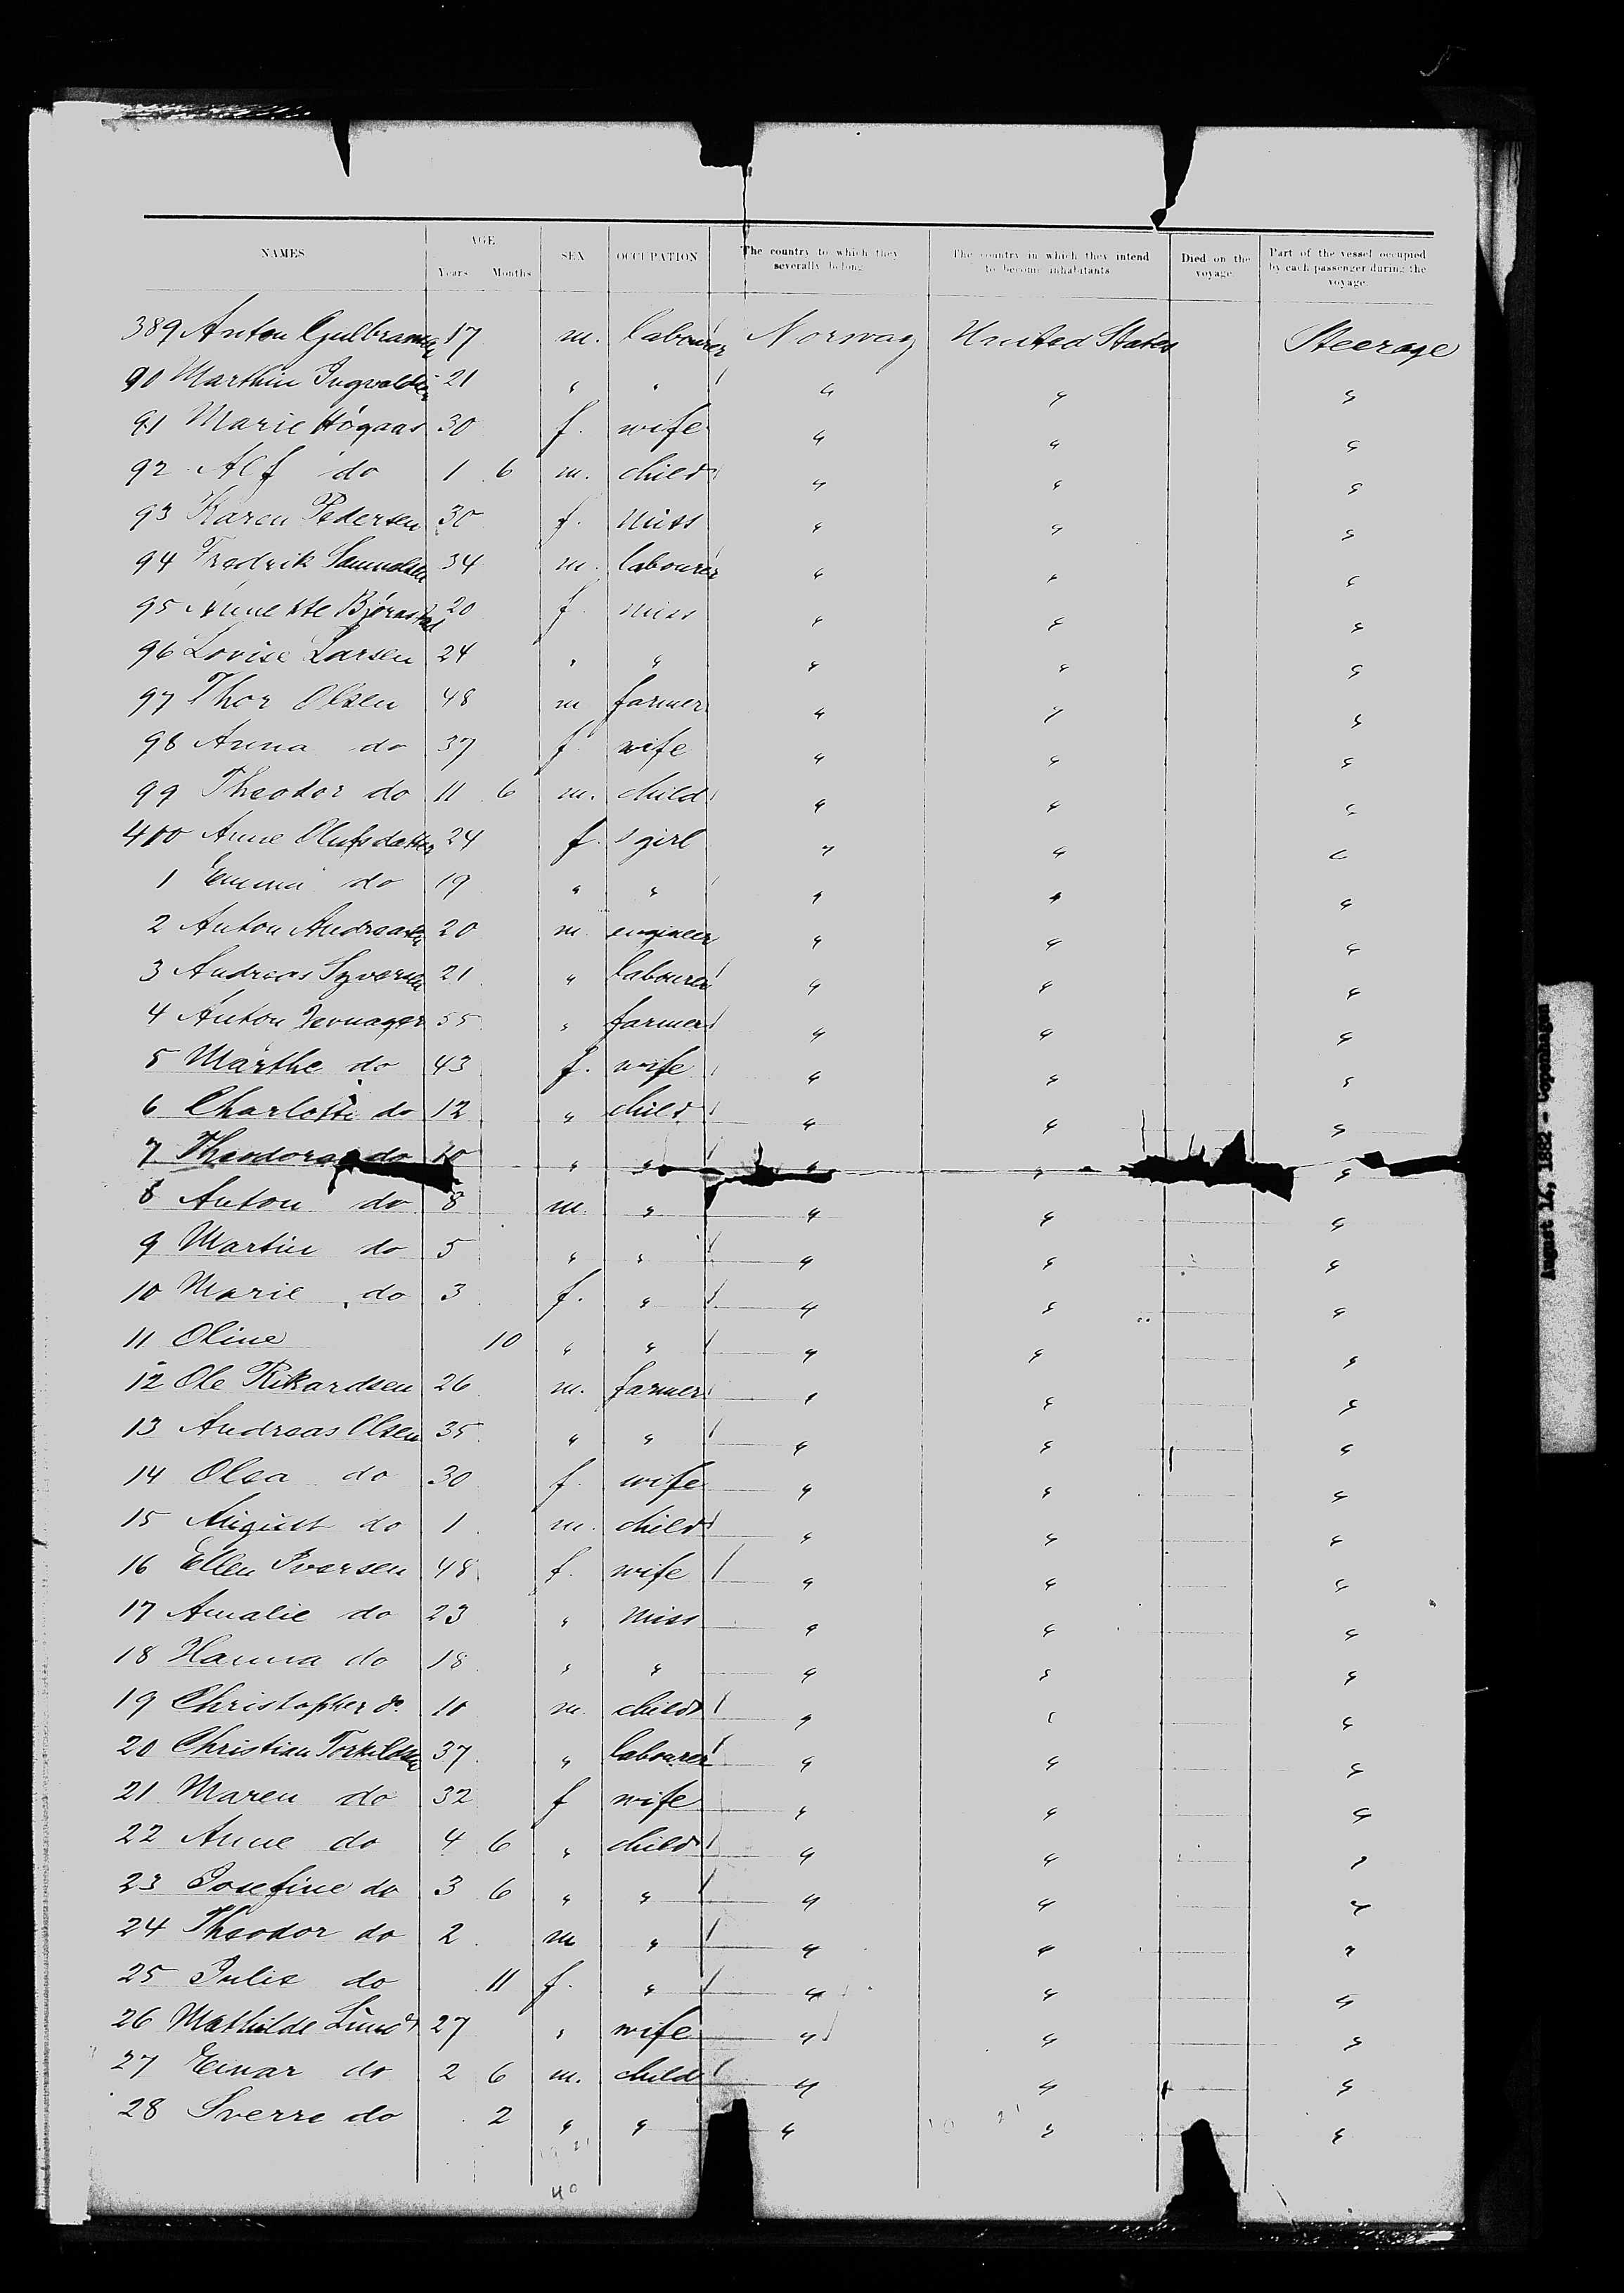 NAMES AGE SEX OCCUPATION The country to which they severally belong The country in which they intend to become inhabitants Died on the voyage. Part of the vessel occupied by each passenger during the voyage.
Years Months
389 Anton Gulbransen 17 m. labourer Norway United States Steerage
90 Marthin Ingvaldsen 21 " " " " "
91 Marie Högaas 30 f. wife " " "
92 Alf do 1 6 m. child " " "
93 Karen Pedersen 30 f. miss " " "
94 Fredrik Samuelsen 34 m. labourer " " "
95 Bjørnstad 20 f miss " " "
96 Lovise Larsen 24 " " " " "
97 Thor Olsen 48 m farmer " " "
98 Anna do 37 f wife " " "
99 Theodor do 11 6 m. child " " "
400 Anne Olufsdatter 24 f. s girl " " "
1 Emma do 19 " " " " "
2 Anton Andreasen 20 m engineer " " "
3 Andreas Syversen 21 " labourer " " "
4 Anton 55 " farmer " " "
5 Marthe do 43 f. wife " " "
6 Charlotte do 12 " child " " "
7 Theodora do 10 " " " " "
8 Anton do 8 m " " " "
9 Martin do 5 " " " " "
10 Marie do 3 f. " " " "
11 Oline 10 " " " " "
12 Ole Rikardsen 26 m. farmer " " "
13 Andreas Olsen 35 " " " " "
14 Olea do 30 f. wife " " "
15 August do 1 m. child " " "
16 Ellen Iversen 48 f. wife " " "
17 Amalie do 23 " miss " " "
18 Hanna do 18 " " " " "
19 Christopher do. 10 m child " " "
20 Christian Torkildsen 37 " labourer " " "
21 Maren do 32 f wife " " "
22 Anne do 4 6 " child " " "
23 Josefine do 3 6 " " " " "
24 Theodor do 2 m " " " "
25 Julie do 11 f. " " " "
26 Mathilde Lund 27 " wife " " "
27 Einar do 2 6 m. child " " "
28 Sverre do 2 " " " " "
40
August 14, 1882 - Copenhagen